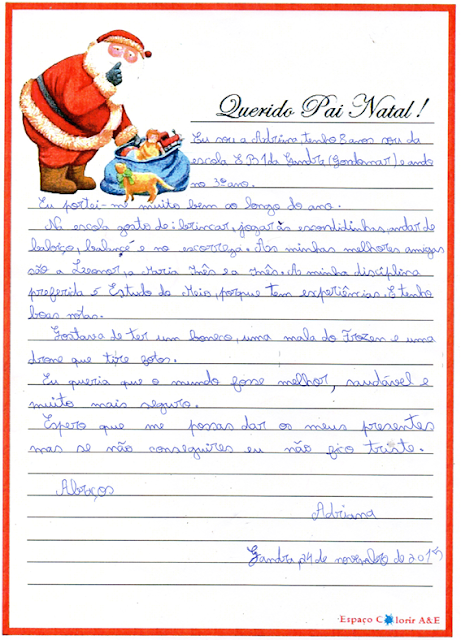 Querido Pai Natal!
Eu sou a Adriana, tenho 8 anos sou da
escola E B1 da Gandra (Gondomar) e ando
no 3º ano.
Eu portei-me muito bem ao longo do ano.
Na escola gosto de: brincar, jogar às escondidinhas, andar de
baloiço, balancé e no escorrega. As minhas melhores amigas
são a Leonor, a Maria Inês e a Inês. A minha disciplina
preferida é Estudo do Meio, porque tem experiências. E tenho
boas notas.
Gostava de ter um boneco, uma mala do Frozen e uma
drone que tire fotos.
Eu queria que o mundo fosse melhor, saudável e
muito mais seguro.
Espero que me possas dar os meus presentes
mas se não conseguires eu não fico triste.
Abraços
Adriana
Gandra, 24 de novembro de 2015
Espaço Colorir A&E